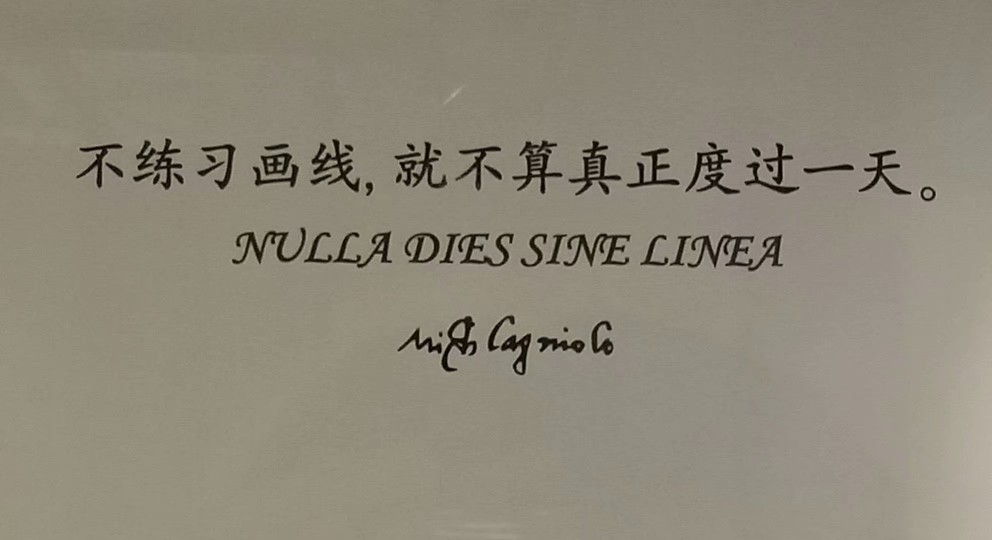 不练习画线，就不算真正度过一天。
NULLA DIES SINE LINEA